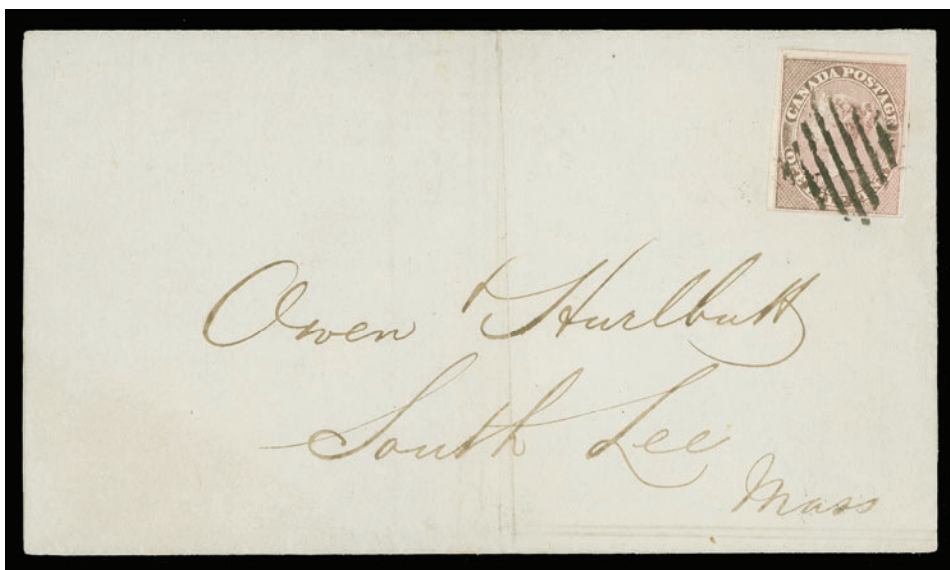 CANADA POSTAGE
Owen Hurlbutt
South Lee
Mass